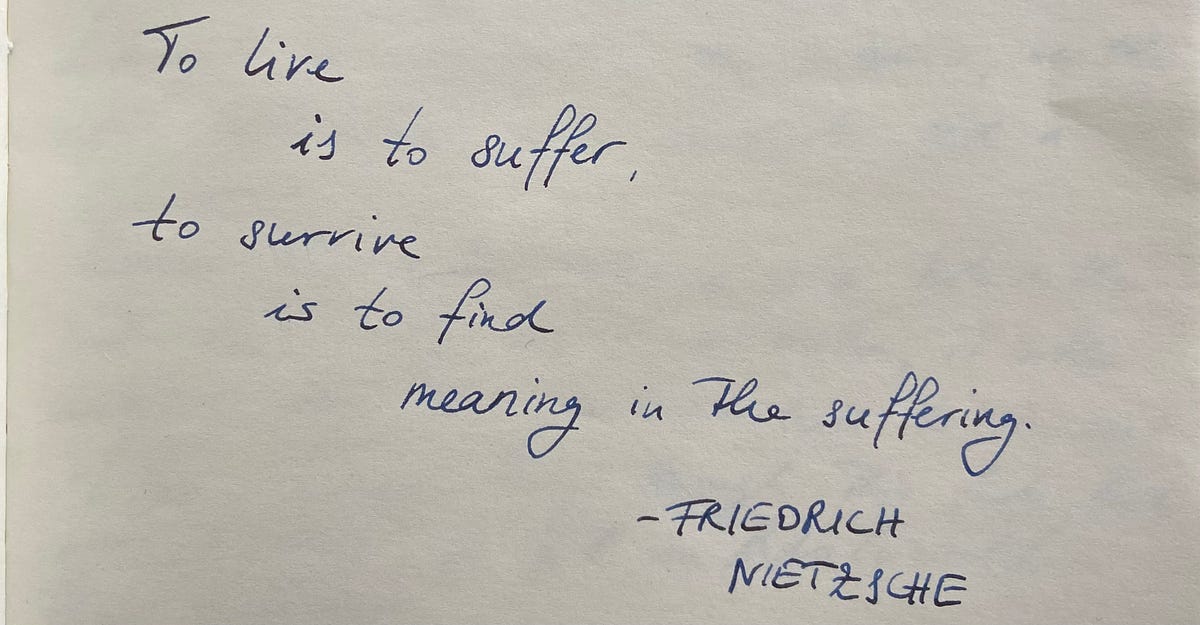 To live
is to suffer,
to survive
is to find
meaning in the suffering.
- FRIEDRICH
NIETZSCHE